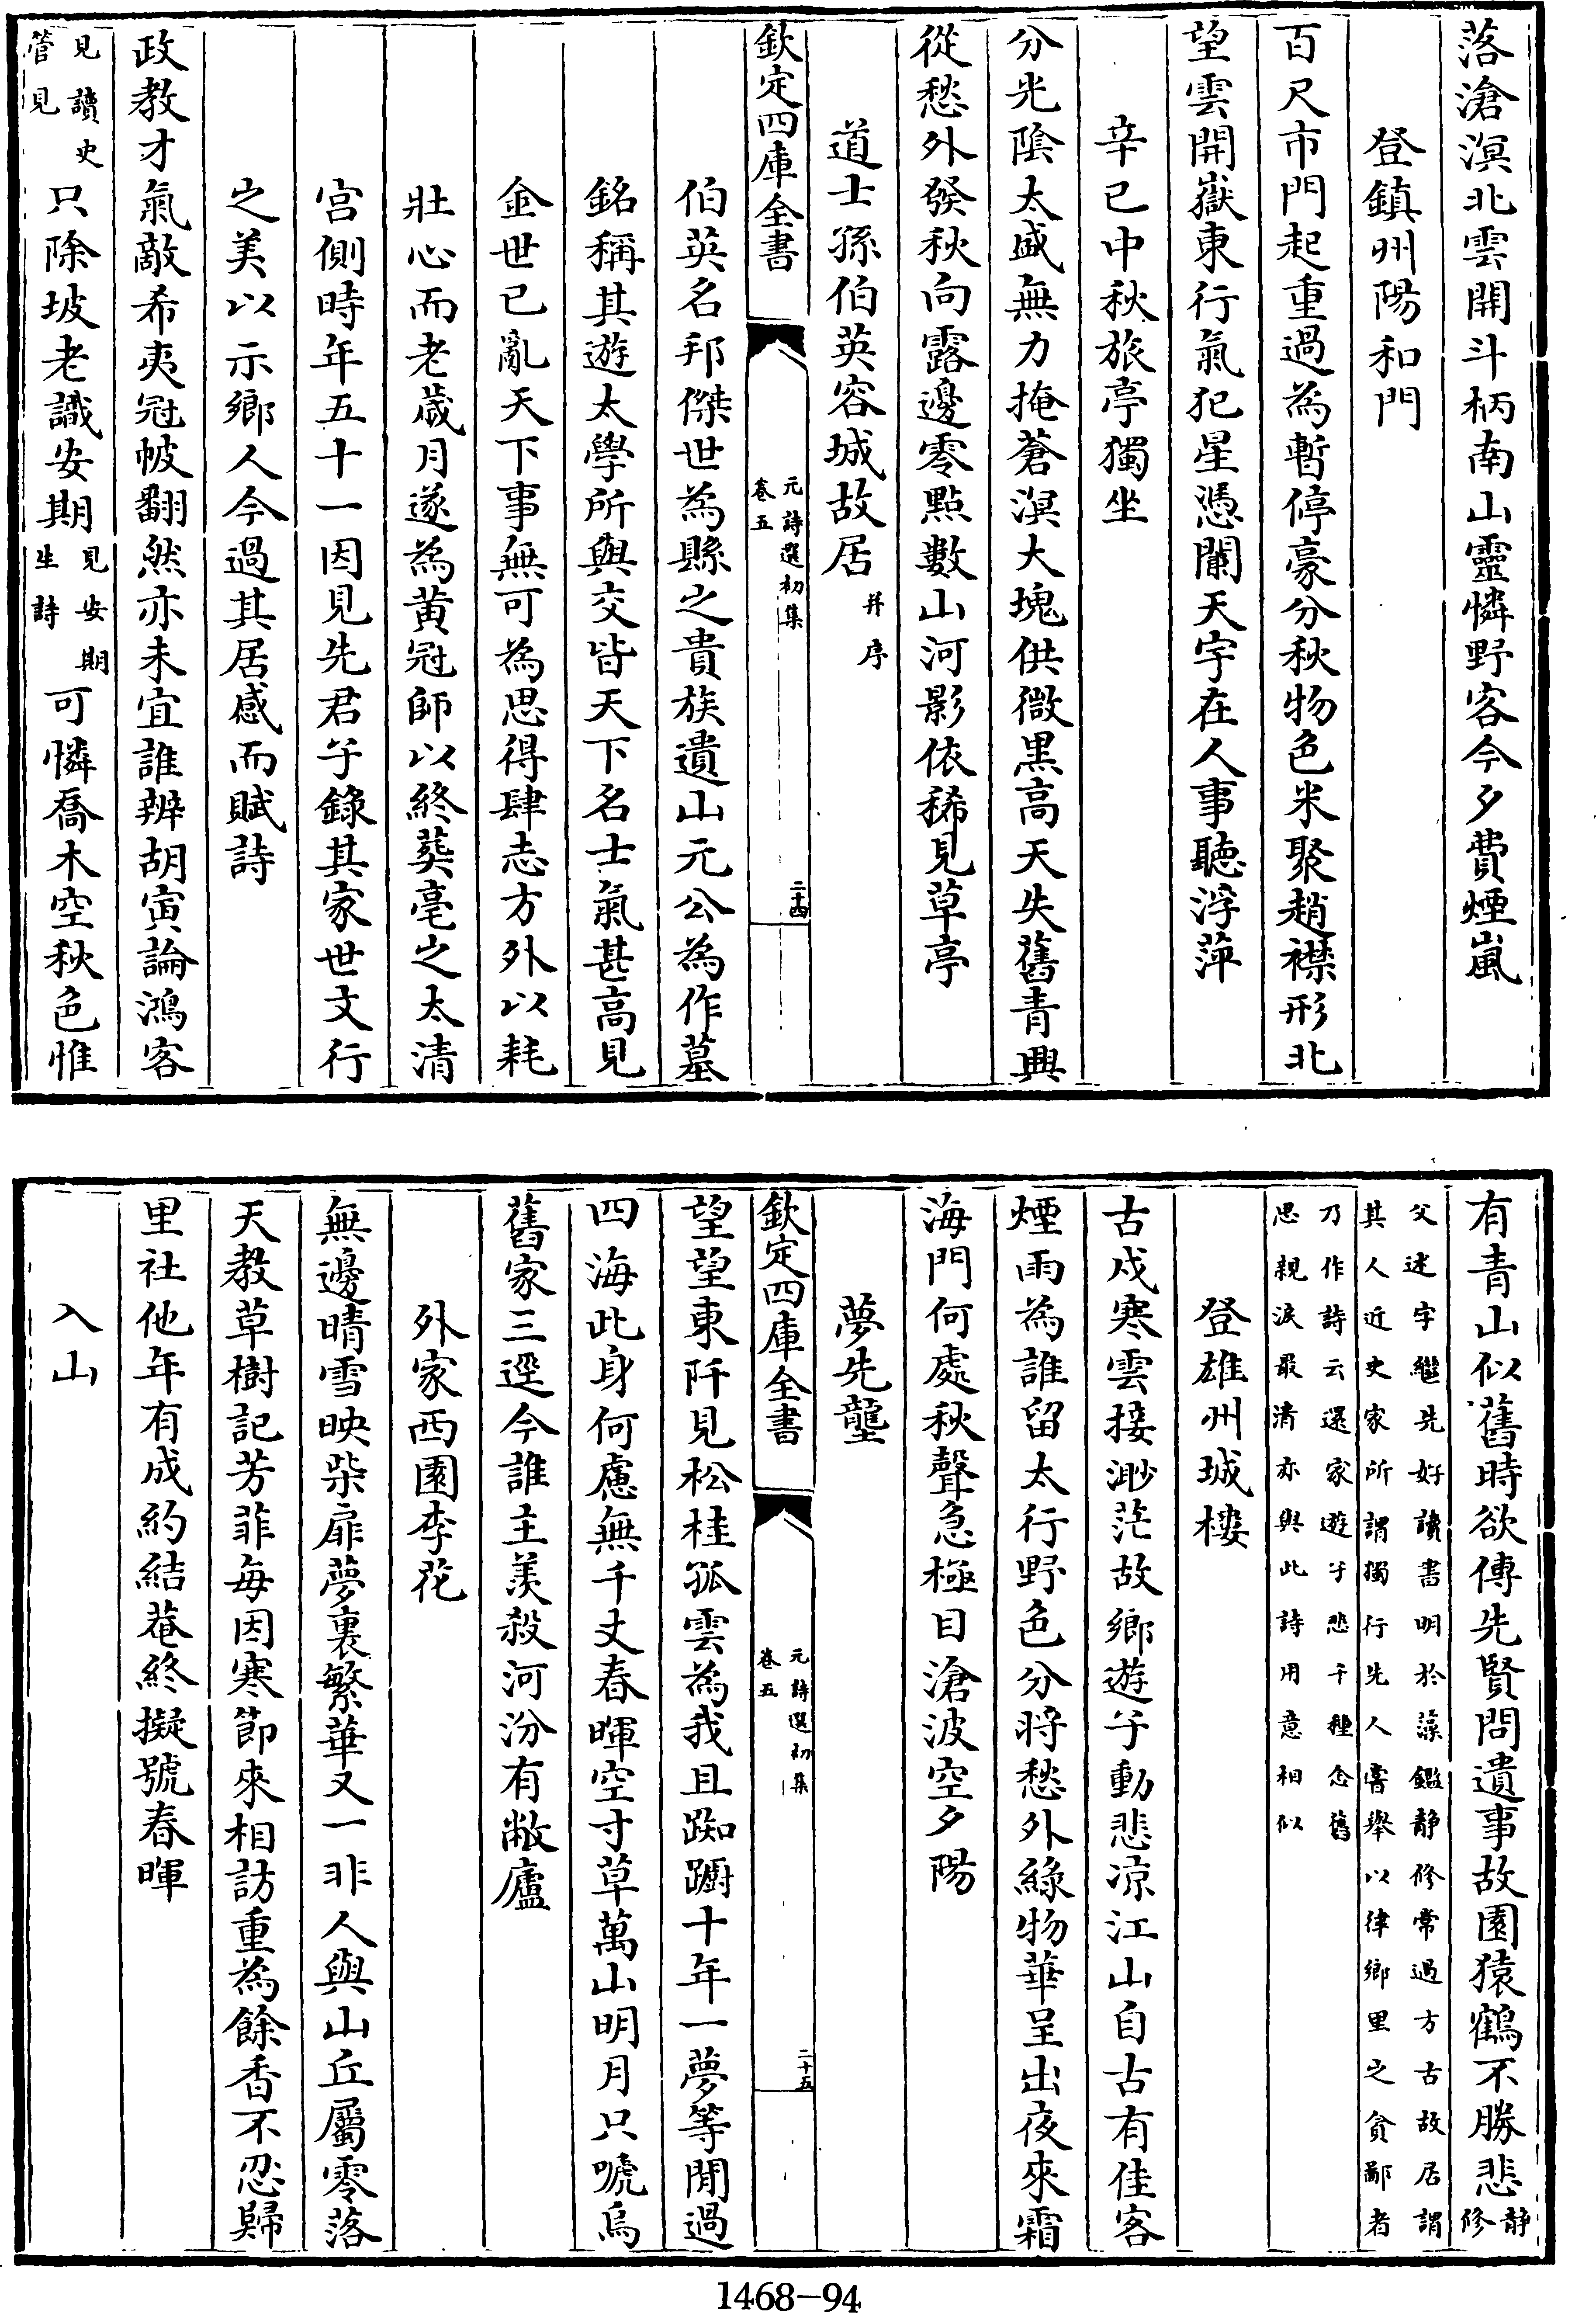 落滄溟北雲開斗柄南山靈憐野客今夕費煙嵐
登鎮州陽和門
百尺市門起重過為暫停豪分秋物色米聚趙襟形北
望雲開嶽東行氣犯星憑闌天宇在人事聽浮萍
辛巳中秋旅亭獨坐
分光陰太盛無力掩蒼溟大塊供微黑高天失舊青興
從愁外發秋向露邊零點數山河影依稀見草亭
道士孫伯英容城故居并序
欽定四庫全書
元詩選初集
卷五
二十四
伯英名邦傑世為縣之貴族遺山元公為作墓
銘稱其遊太學所與交皆天下名士氣甚高見
金世已亂天下事無可為思得肆志方外以耗
壯心而老歲月遂為黃冠師以終葬亳之太清
宮側時年五十一因見先君子錄其家世文行
之美以示鄉人今過其居感而賦詩
政教才氣敵希夷冠帔翻然亦未宜誰辨胡寅論鴻客
見讀史
管見
只除坡老識安期
見安期
生詩
可憐喬木空秋色惟
有青山似舊時欲傳先賢問遺事故園猿鶴不勝悲
静
修
父述字繼先好讀書明於藻鑑静修常過方古故居謂
其人近史家所謂獨行先人嘗舉以律鄉里之貪鄙者
乃作詩云還家遊子悲千種念舊
思親淚最清亦與此詩用意相似
登雄州城樓
古戍寒雲接渺茫故鄉遊子動悲凉江山自古有佳客
煙雨為誰留太行野色分將愁外綠物華呈出夜來霜
海門何處秋聲急極目滄波空夕陽
夢先壟
欽定四庫全書
元詩選初集
卷五
二十五
望望東阡見松桂孤雲為我且踟躕十年一夢等閒過
四海此身何慮無千丈春暉空寸草萬山明月只嗁烏
舊家三逕今誰主羨殺河汾有敝廬
外家西園李花
無邊晴雪映柴扉夢裏繁華又一非人與山丘屬零落
天教草樹記芳菲每因寒節來相訪重為餘香不忍歸
里社他年有成約結菴終擬號春暉
入山
1468-94